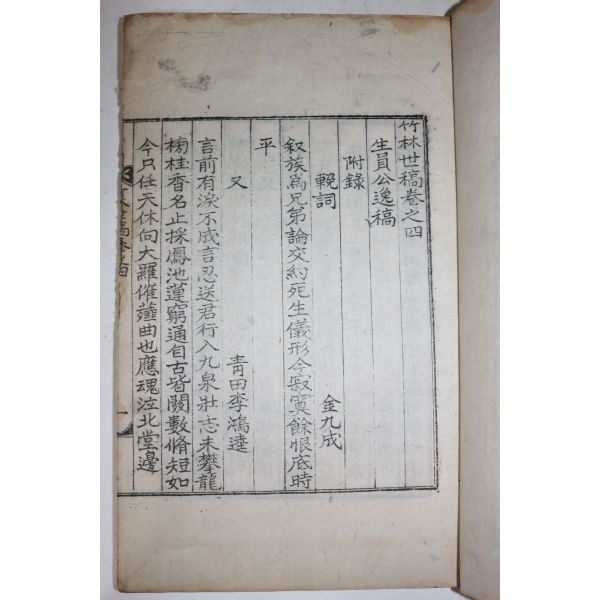 竹林世稿卷之四
生員公逸稿
附錄
輓詞
金九成
叙族爲兄弟論交約死生儀形今寂寞餘恨底時
平
又
靑田李鴻逵
言前有淚不成言忍送君行入九泉壯志未攀龍
榜桂香名止採鳳池蓮窮通自古皆關數脩短如
今只任天休向大羅催薤曲也應魂泣北堂邊